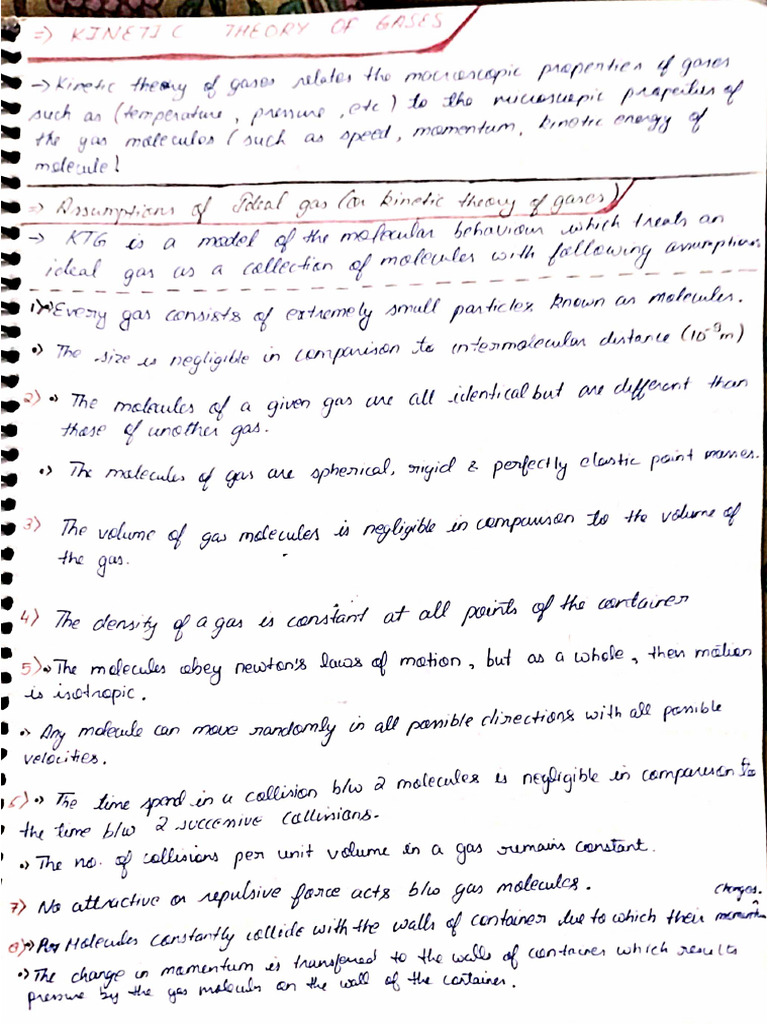 => KINETIC THEORY OF GASES
-> Kinetic theory of gases relates the macroscopic properties of gases
such as (temperature, pressure, etc) to the microscopic properties of
the gas molecules (such as speed, momentum, kinetic energy of
molecule)
=> Assumptions of Ideal gas (or kinetic theory of gases)
-> KTG is a model of the molecular behaviour which treats an
ideal gas as a collection of molecules with following assumptions
1) •) Every gas consists of extremely small particles known as molecules.
•) The size is negligible in comparison to intermolecular distance (10⁻⁹m)
2) •) The molecules of a given gas are all identical but are different than
those of another gas.
•) The molecules of gas are spherical, rigid & perfectly elastic point masses.
3) The volume of gas molecules is negligible in comparison to the volume of
the gas.
4) The density of a gas is constant at all points of the container
5) •) The molecules obey newton's laws of motion, but as a whole, their motion
is isotropic.
•) Any molecule can move randomly in all possible directions with all possible
velocities.
6) •) The time spend in a collision b/w 2 molecules is negligible in comparison to
the time b/w 2 successive collisions.
•) The no. of collisions per unit volume in a gas remains constant.
7) No attractive or repulsive force acts b/w gas molecules.
changes.
8) •) Molecules constantly collide with the walls of container due to which their momentum
•) The change in momentum is transferred to the walls of container which results
pressure by the gas molecules on the wall of the container.